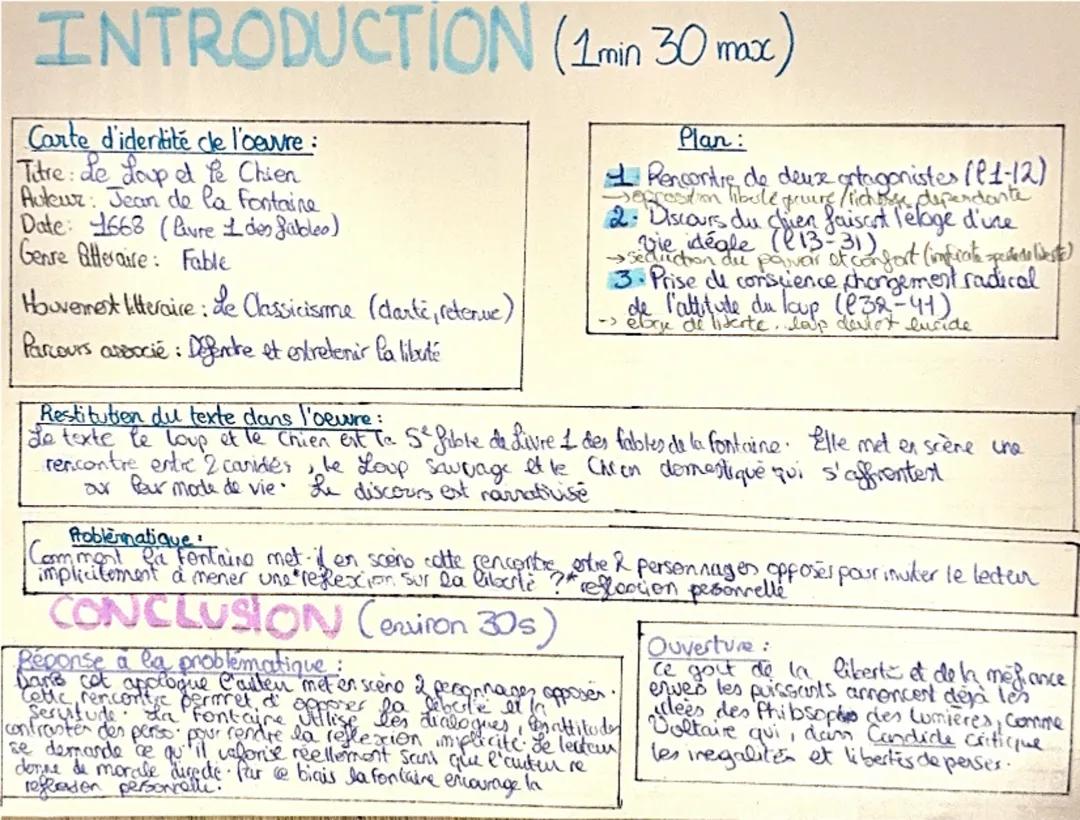 INTRODUCTION (1min 30 max)
Carte d'identité de l'oeuvre :
Titre : Le Loup et le Chien
Auteur : Jean de la Fontaine
Date : 1668 (livre 1 des fables)
Genre litteraire : Fable
Mouvement litteraire : Le Classicisme (clarté, retenue)
Parcours associé : Défendre et entretenir la liberté
Plan :
1. Rencontre de deux antagonistes (l 1-12)
→ opposition liberté pauvre / richesse dependante
2. Discours du chien faisant l'éloge d'une
vie idéale (l 13-31)
→ séduction du pouvoir et confort (implicite perte de liberté)
3. Prise de conscience, changement radical
de l'attitute du loup (l 32-41)
-> éloge de liberte .. loup devient lucide
Restitution du texte dans l'oeuvre :
Le texte le Loup et le Chien est la 5e fable du Livre 1 des fables de la Fontaine. Elle met en scène une
rencontre entre 2 canidés, le Loup sauvage et le Chien domestique qui s'affrontent
sur leur mode de vie. Le discours est narrativisé
Problèmatique :
Comment la Fontaine met-il en scène cette rencontre entre 2 personnages opposés pour inviter le lecteur
implicitement à mener une* reflexion sur la liberté ? * reflexion personnelle
CONCLUSION (environ 30s)
Réponse à la problèmatique :
Dans cet apologue l'auteur met en scène 2 personnages opposés.
Cette rencontre permet d'opposer la liberté et la
servitude. La Fontaine utilise les dialogues, les attitudes
contrastés des perso. pour rendre la réflexion implicite. Le lecteur
se demande ce qu'il valorise réellement sans que l'auteur ne
donne de morale directe. Par ce biais la fontaine encourage la
reflexion personnelle.
Ouverture :
Ce gout de la liberté et de la méfiance
envers les puissants annoncent déjà les
idées des Philosophes des Lumières, comme
Voltaire qui, dans Candide critique
les inegalités et libertés de penser.